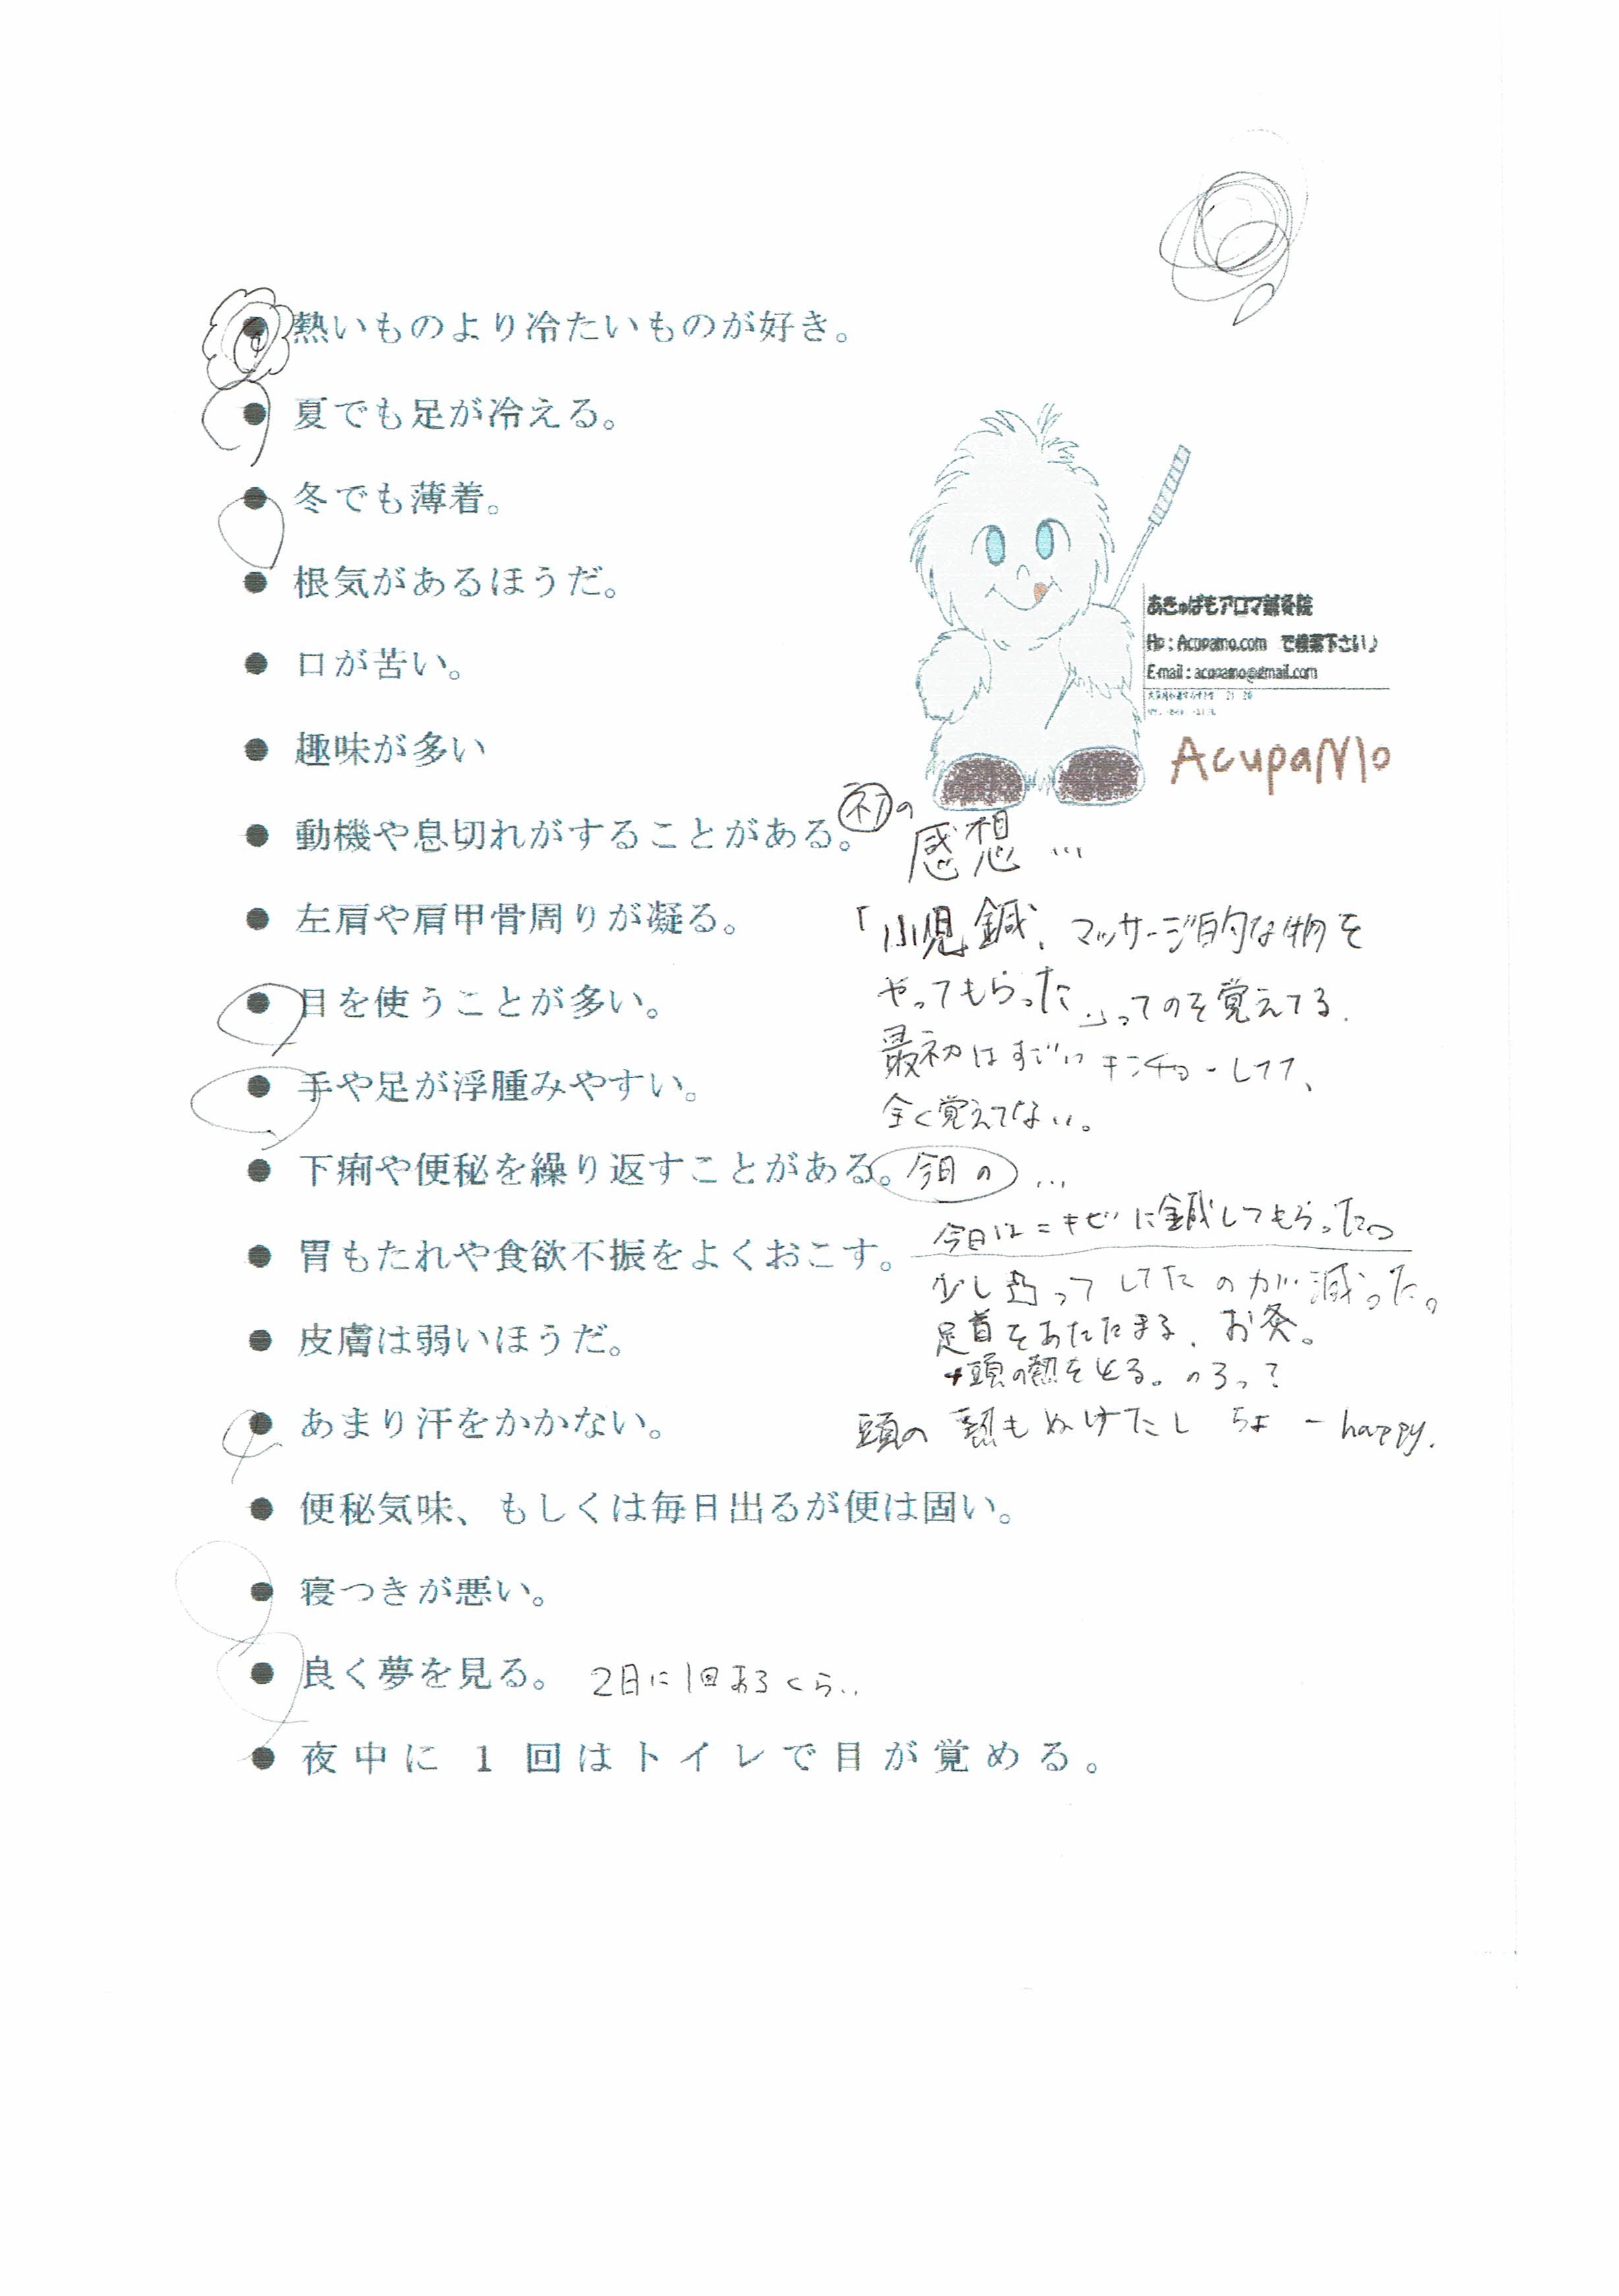 熱いものより冷たいものが好き。
夏でも足が冷える。
冬でも薄着。
根気があるほうだ。
口が苦い。
趣味が多い
動機や息切れがすることがある。
左肩や肩甲骨周りが凝る。
目を使うことが多い。
手や足が浮腫みやすい。
下痢や便秘を繰り返すことがある。
胃もたれや食欲不振をよくおこす。
皮膚は弱いほうだ。
あまり汗をかかない。
便秘気味、もしくは毎日出るが便は固い。
寝つきが悪い。
良く夢を見る。 2日に1回あるくらい
夜中に1回はトイレで目が覚める。
あきゅぱもアロマ鍼灸院
Hp：Acupamo.com で検索下さい♪
E-mail：acupamo@gmail.com
AcupaMo
初の
感想…
「小児鍼、マッサージ的な物を
やってもらった」ってのを覚えてる.
最初はすごいキンチョーしてて、
全く覚えてない。
今日の…
今日はニキビに鍼してもらった
少し凸ってしてたのが減った。
足首をあたたまる、お灸。
+頭の熱をとる。のろって
頭の熱もぬけたし ちょーhappy.